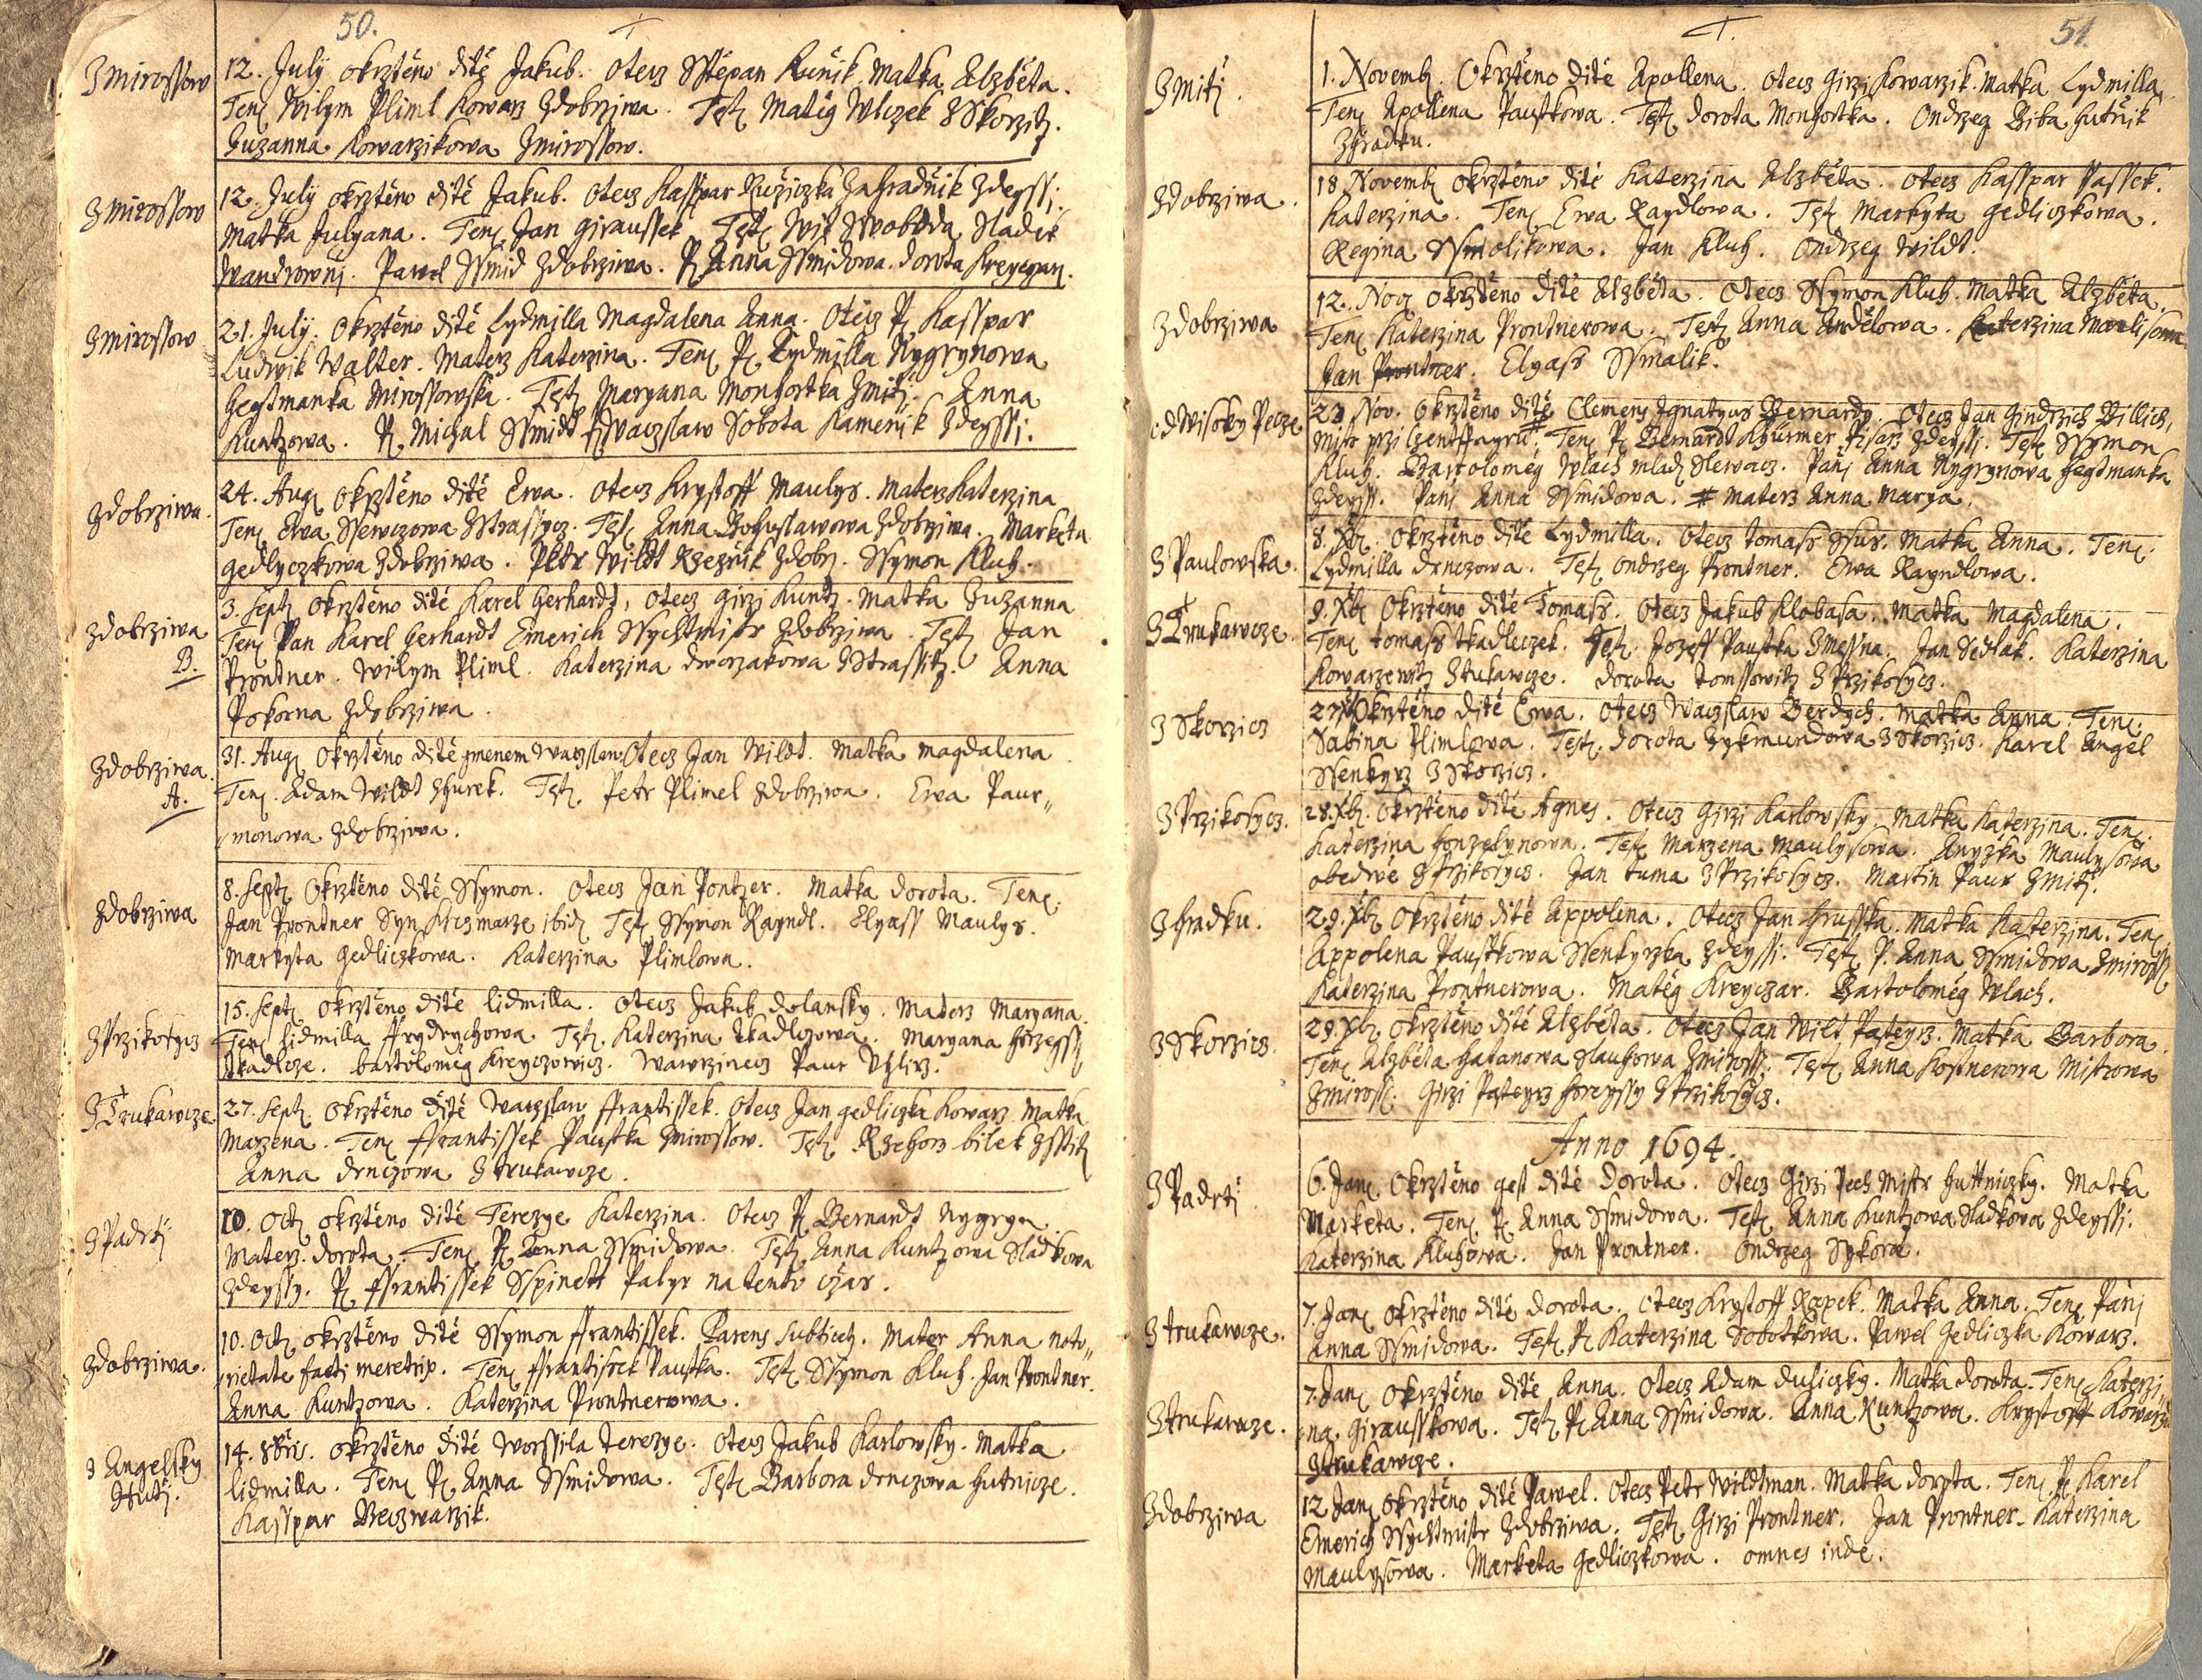 50.
Z Mirossow
12. July okrztěno dítě Jakub. Otecz Sstěpan Kučik. Matka Alzběta.
Ten: Wilym Pliml Kowarz Zdobrziwa. Test: Matěg Wlczek Z Skorzicz.
Zuzanna Kowarzikowa Zmirossow.
Z Mirossow
12. July okrztěno dítě Jakub. Otecz Kasspar Ružiczka Zahradňik Zdeyssi.
Matka Julyana. Ten: Jan Giraussek. Test: Wit Swoboda Sladek
Wandrowni. Pawel Ssmid Zdobrziwa. P. Anna Ssmidowa. Dorota
Zmirossow
21. July. Okrztěno dítě Lydmilla Magdalena Anna. Otecz P. Kasspar
Ludwik Walter. Materz Katerzina. Ten: P. Lydmilla Nygrynowa
Hegtmanka Mirossowska. Test: Maryana Monhortka Zmiti. Anna
Kuntzowa. P. Michal Ssmidt Waczslaw Sobota Kameňik Zdeyssi.
Zdobrziwa.
24. Aug: okrztěno dítě Ewa. Otecz Krystoff Maulys. Materz Katerzina
Ten: Ewa Ssewczowa Zstrassycz. Test: Anna Bohuslawowa Zdobrziwa. Marketa
Gedlyczkowa Zdobrziwa. Petr Wildt Rzeznik Zdobrz. Ssymon Kluh.
Zdobrziwa
B.
3. Sept: Okrztěno dítě Karel Gerhardt, Otecz Girzi Kuntz. Matka Zuzanna
Ten: Pan Karel Gerhardt Emerich Ssychtmistr Zdobrziwa. Test: Jan
Prontner. Wilym Pliml. Katerzina Dworzakowa Zstrassitz. Anna
Pokorna Zdobrziwa.
Zdobrziwa.
A.
31. Aug: Okrztěno dítě gmenem Waczslaw Otecz Jan Wildt. Matka Magdalena
Ten: Adam Wildt Zhurek. Test: Petr Plimel Zdobrziwa. Ewa Paur„
monowa Zdobrziwa.
Zdobrziwa
8. Sept: Okrztěno dítě Ssymon. Otecz Jan Pontzer. Matka Dorota. Ten:
Jan Prontner Syn Krczmarze ibid: Test: Ssymon Rayndl. Elyass Maulys.
Markyta Gedliczkowa. Katerzina Plimlowa.
ZPrzikosycz
15. Sept: okrztěno dítě Lidmilla. Otecz Jakub Dolansky. Materz Maryana.
Ten: Lidmilla Ffrydrychowa. Test: Katerzina Tkadlczowa. Maryana
Tkadlcze. Bartoloměg Kreyczowicz. Wawrzinecz Paur Uhlirz.
Z Trukawcze
27. Sept: Okrztěno dítě Waczslaw Ffrantissek. Otecz Jan Gedliczka Kowarz. Matka
Marzena. Ten: Ffrantissek Paustka Zmirossow. Test: Rzehorz Bilek
Anna Drnczowa Z Trukawcze.
Z Padrti
10. Oct: okrztěno dítě Terezye Katerzina. Otecz P. Bernardt Nygryn
Materz. Dorota. Ten: P. Anna Ssmidowa. Test: Anna Kuntzowa Sladkowa
Zdeyssy. P. Ffrantissek Sspinett Palyr na tento czas.
Zdobrziwa.
10. Oct: okrztěno dítě Ssymon Ffrantissek. Parens subticet. Mater Anna noto„
rietate facti meretrix. Ten: Ffrantissek Paustka. Test: Ssymon Kluh. Jan Prontner.
Anna Kuntzowa. Katerzina Prontnerowa.
Z Angelsky
Huti.
14. 8bris. okrztěno dítě Worssila Terezye. Otecz Jakub Karlowsky. Matka
Lidmilla. Ten: P. Anna Ssmidowa. Test: Barbora Drnczowa Hutnicze.
Kasspar Beczwarzik.
51.
Zmiti.
1. Novemb: Okrztěno dítě Apollena. Otecz Girzi Kowarzik. Matka Lydmilla
Ten: Apollena Paustkowa. Test: Dorota Monhortka. Ondrzeg Biba Hutňik
Zhradku.
Zdobrziwa.
18 Novemb: okrztěno dítě Katerzina Alzběta. Otecz Kasspar Passek.
Katerzina. Ten: Ewa Raydlowa. Test: Markyta Gedliczkowa.
Regina Ssmolikowa. Jan Kluh. Ondrzeg Wildt.
Zdobrziwa
12. Nov: okrztěno dítě Alzběta. Otecz Ssymon Kluh. Matka Alzběta.
Ten: Katerzina Prontnerowa. Test: Anna Andělowa. Katerzina Maulisowa
Jan Prontner. Elyass Ssmalik.
od Wisoky Pecze
23. Nov. Okrztěno dítě Clemens Ignatyus Bernardy. Otecz Jan Gindrzich Billich,
Mistr przi # Ten: P. Bernardt Khürmer Pisarz Zdeyssi. Test: Ssymon
Kluh. Bartoloměg Wlach mlad: Slewacz. Pani Anna Nygrynowa Hegtmanka
Zdeyss. Pani Anna Ssmidowa. # Materz Anna Marya.
Z Paulowska.
8. Xb: Okrztěno dítě Lydmilla. Otecz Tomass Ssus. Matka Anna. Ten:
Lydmilla Drnczowa. Test: Ondrzeg Prontner. Ewa Rayndlowa.
Z Trukawcze.
9. Xb: Okrztěno dítě Tomass. Otecz Jakub Klobasa. Matka Magdalena.
Ten: Tomass Tkadleczek. Test: Jozeff Paustka Zmessna. Jan Sedlak. Katerzina
Kowarzewitz Ztrukawcze. Dorota Tomssowitz Z Przikosycz.
Z Skorzicz
Okrztěno dítě Ewa. Otecz Waczslaw Berdych. Matka Anna. Ten:
Sabina Plimlowa. Test: Dorota Zykmundowa Z Skorzicz. Karel Angel
Ssenkyrz Z Skorzicz.
Z Przikosycz.
28. Xb: Okrztěno dítě Agnes. Otecz Girzi Karlowsky. Matka Katerzina. Ten:
Katerzina Honzelynowa. Test: Marzena Maulysowa. Anyzka Maulysowa
obedwě Z Przikosycz. Jan Tuma Z Przikosycz. Martin Paur Zmiti.
Z Hradku.
29. Xb: Okrztěno dítě Appolina. Otecz Jan Hrusska. Matka Katerzina. Ten:
Appolena Paustkowa Ssenkyrzka Zdeyssi. Test: P. Anna Ssmidowa Zmiross:
Katerzina Prontnerowa. Matěg Kreyczar. Bartoloměg Wlach.
Z Skorzicz.
29. Xb: okrztěno dítě Alzběta. Otecz Jan Wilt Pasteyrz. Matka Barbora.
Ten: Alzběta Hatanowa Slauhowa Zmiross: Test: Anna Kostnerowa Mistrowa
Zmiross: Girzi Pasteyrz horeyssy Z Przikosycz.
Anno 1694.
Z Padrti
6. Jan: Okrztěno gest dítě Dorota. Otecz Girzi Pech Mistr Huttniczky. Matka
Marketa. Ten: P. Anna Ssmidowa. Test: Anna Kuntzowa Sladkowa Zdeyssi.
Katerzina Kluhowa. Jan Prontner. Ondrzeg Sykora.
Z Trukawcze.
7. Jan: okrztěno dítě Dorota. Otecz Krystoff Rzepek. Matka Anna. Ten: Pani
Anna Ssmidowa. Test: P. Katerzina Sobotkowa. Pawel Gedliczka Kowarz.
Z Trukawcze.
7. Jan: okrztěno dítě Anna. Otecz Adam Dusiczky. Matka Dorota. Ten: Katerzi„
na Girausskowa. Test: P. Anna Ssmidowa. Anna Kuntzowa. Krystoff Kowarz
Ztrukawcze.
Zdobrziwa
12 Jan: okrztěno dítě Pawel. Otecz Petr Wildtman. Matka Dorota. Ten: P. Karel
Emerich Ssychtmistr Zdobrziwa. Test: Girzi Prontner. Jan Prontner. Katerzina
Maulysowa. Marketa Gedliczkowa. omnes inde.